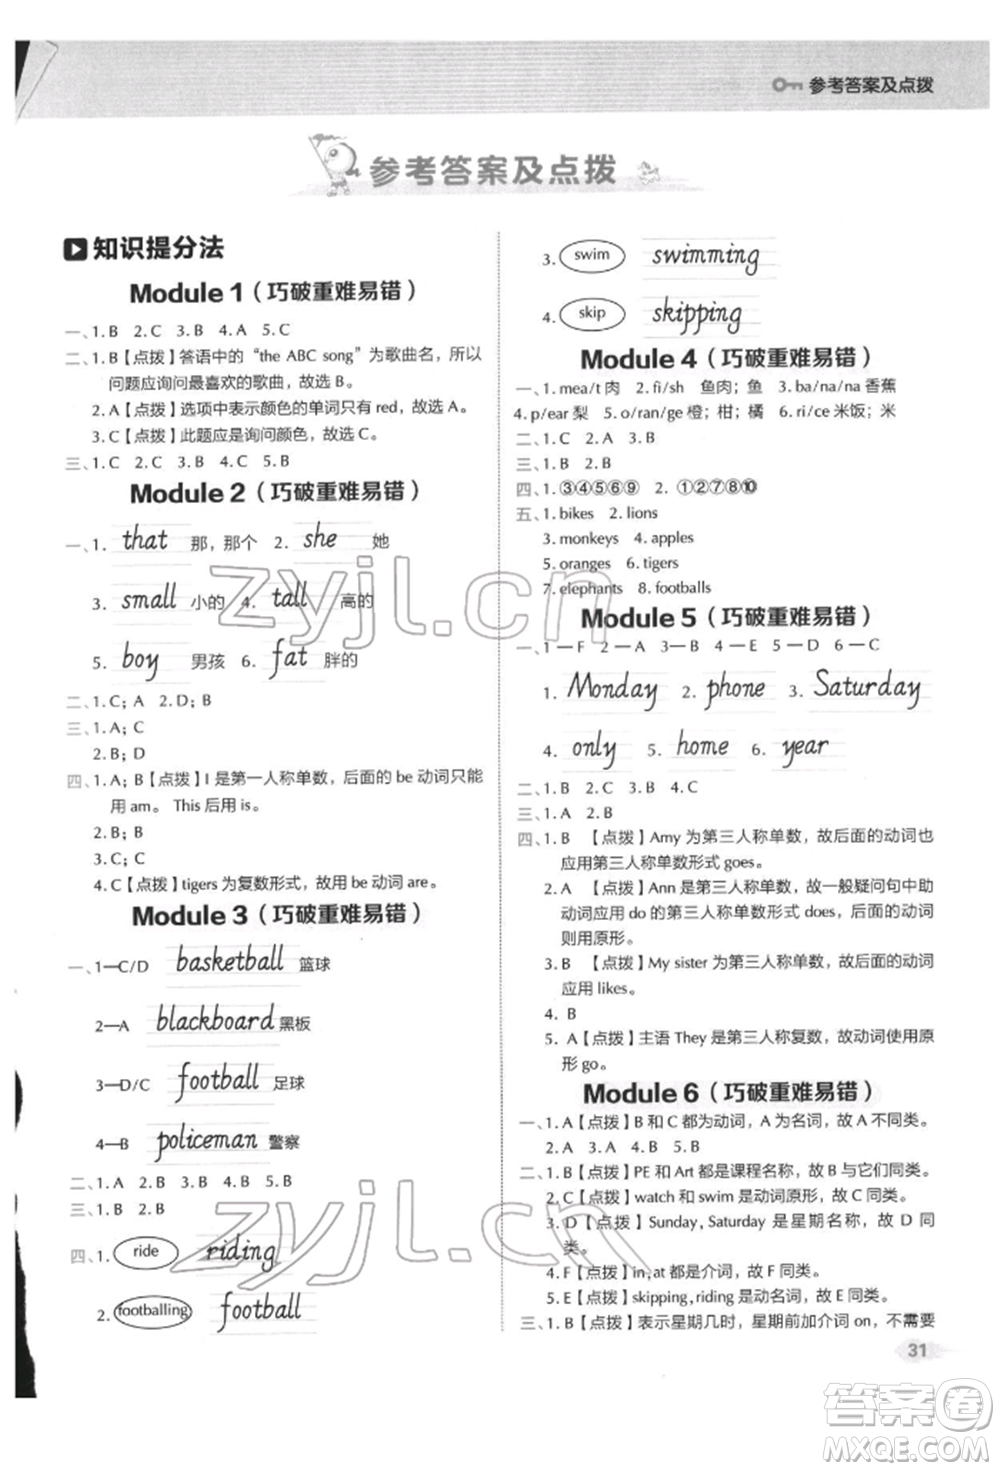 参考答案及点拨
参考答案及点拨
知识提分法
Module 1（巧破重难易错）
一、1. B 2. C 3. B 4. A 5. C
二、1. B【点拨】答语中的“the ABC song”为歌曲名，所以
问题应询问最喜欢的歌曲，故选 B。
2. A【点拨】选项中表示颜色的单词只有 red，故选 A。
3. C【点拨】此题应是询问颜色，故选 C。
三、1. C 2. C 3. B 4. C 5. B
Module 2（巧破重难易错）
一、1. that 那，那个 2. she 她
3. small 小的 4. tall 高的
5. boy 男孩 6. fat 胖的
二、1. C; A 2. D; B
三、1. A; C
2. B; D
四、1. A; B【点拨】I 是第一人称单数，后面的 be 动词只能
用 am。 This 后用 is。
2. B; B
3. C; A
4. C【点拨】tigers 为复数形式，故用 be 动词 are。
Module 3（巧破重难易错）
一、1—C/D basketball 篮球
2—A blackboard 黑板
3—D/C football 足球
4—B policeman 警察
二、1. A 2. B 3. B 4. B 5. B
三、1. B 2. B
四、1. ride riding
2. footballing football
3. swim swimming
4. skip skipping
Module 4（巧破重难易错）
一、1. mea/t 肉 2. fi/sh 鱼肉；鱼 3. ba/na/na 香蕉
4. p/ear 梨 5. o/ran/ge 橙；柑；橘 6. ri/ce 米饭；米
二、1. C 2. A 3. B
三、1. B 2. C
四、1. ③④⑤⑥⑨ 2. ①②⑦⑧⑩
五、1. bikes 2. lions
3. monkeys 4. apples
5. oranges 6. tigers
7. elephants 8. footballs
Module 5（巧破重难易错）
一、1—F 2—A 3—B 4—E 5—D 6—C
1. Monday 2. phone 3. Saturday
4. only 5. home 6. year
二、1. B 2. C 3. B 4. B
三、1. A 2. B
四、1. B 【点拨】Amy 为第三人称单数，故后面的动词也
应用第三人称单数形式 goes。
2. A 【点拨】Ann 是第三人称单数，故一般疑问句中助
动词应用 do 的第三人称单数形式 does，后面的动词
则用原形。
3. B 【点拨】My sister 为第三人称单数，故后面的动词
应用 likes。
4. B
5. A【点拨】主语 They 是第三人称复数，故动词使用原
形 go。
Module 6（巧破重难易错）
一、1. A【点拨】B 和 C 都为动词，A 为名词，故 A 不同类。
2. A 3. A 4. B 5. B
二、1. B【点拨】PE 和 Art 都是课程名称，故 B 与它们同类。
2. C【点拨】watch 和 swim 是动词原形，故 C 同类。
3. D【点拨】Sunday, Saturday 是星期名称，故 D 同
类。
4. F【点拨】in, at 都是介词，故 F 同类。
5. E【点拨】skipping, riding 是动名词，故 E 同类。
三、1. B【点拨】表示星期几时，星期前加介词 on，不需要
31
zyjl.cn
zyjl.cn
答案卷
MXQE.COM